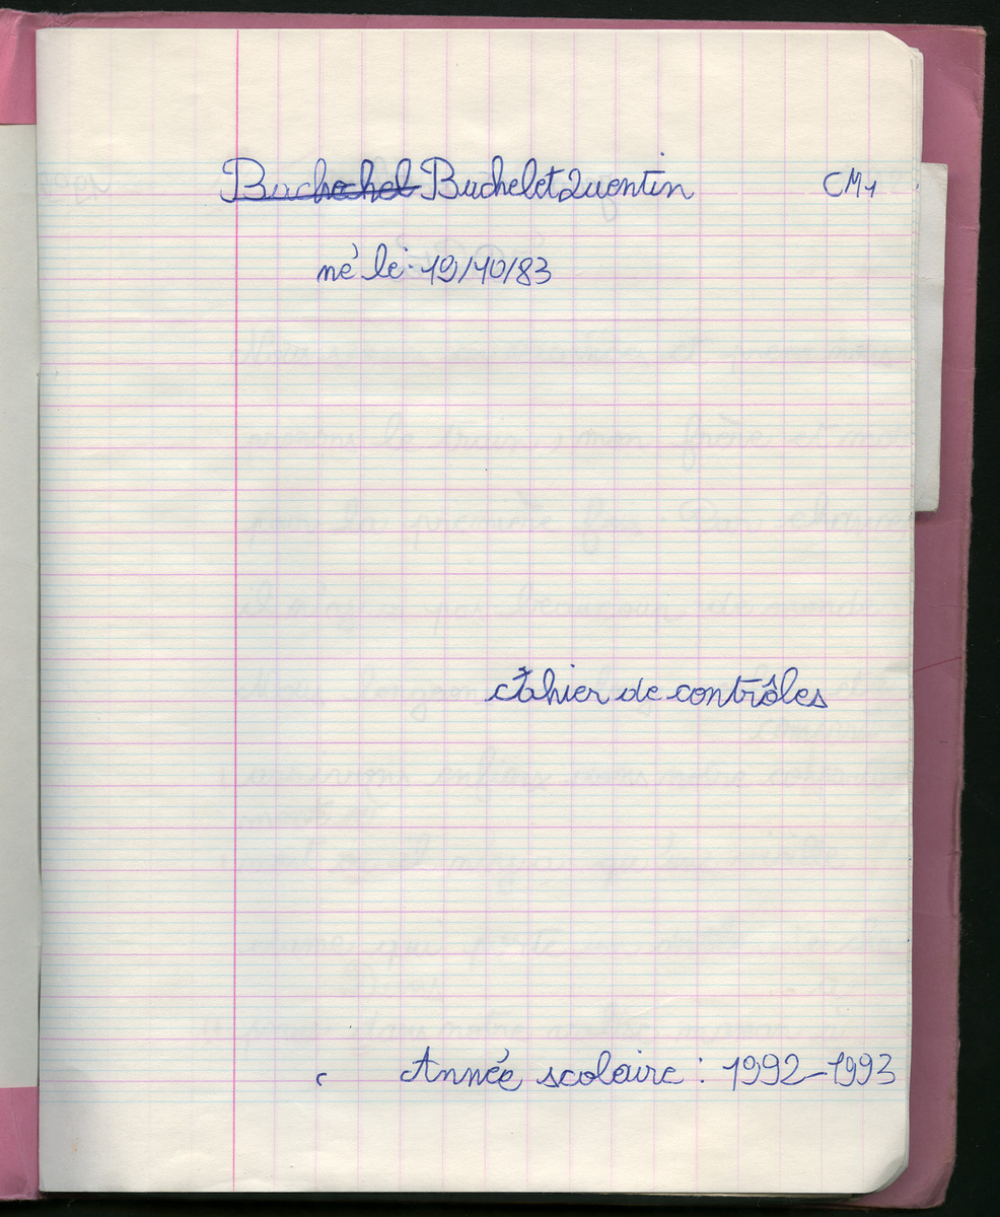 Buchelet Quentin CM1
né le: 19/10/83
Cahier de contrôles
Année scolaire : 1992-1993